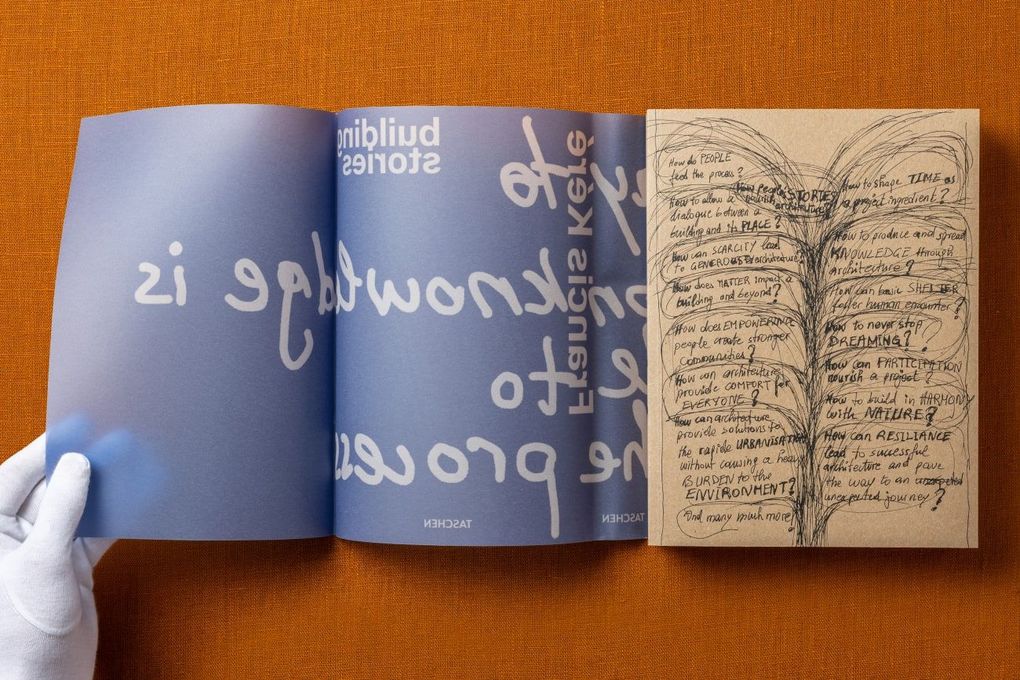 building
stories
Francis Kéré
to
knowledge is
to
he process
TASCHEN
TASCHEN
How do PEOPLE
feed the process?
How people's STORIES
nourish
architecture?
How to allow a
dialogue between a
building and its PLACE?
How can SCARCITY lead
to GENEROUS architecture?
How does MATTER impact a
building and beyond?
How does EMPOWERING
people create stronger
Communities?
How can architecture
provide COMFORT for
EVERYONE?
How can architecture
provide solutions to
the rapide URBANISATION
without causing a heavy
BURDEN to the
ENVIRONMENT?
And many much more
How to shape TIME as
a project ingredient?
How to produce and spread
KNOWLEDGE through
architecture?
How can basic SHELTER
foster human encounter?
How to never stop
DREAMING?
How can PARTICIPATION
nourish a project?
How to build in HARMONY
with NATURE?
How can RESILIANCE
lead to successful
architecture and pave
the way to an unexpected
unexpected journey?